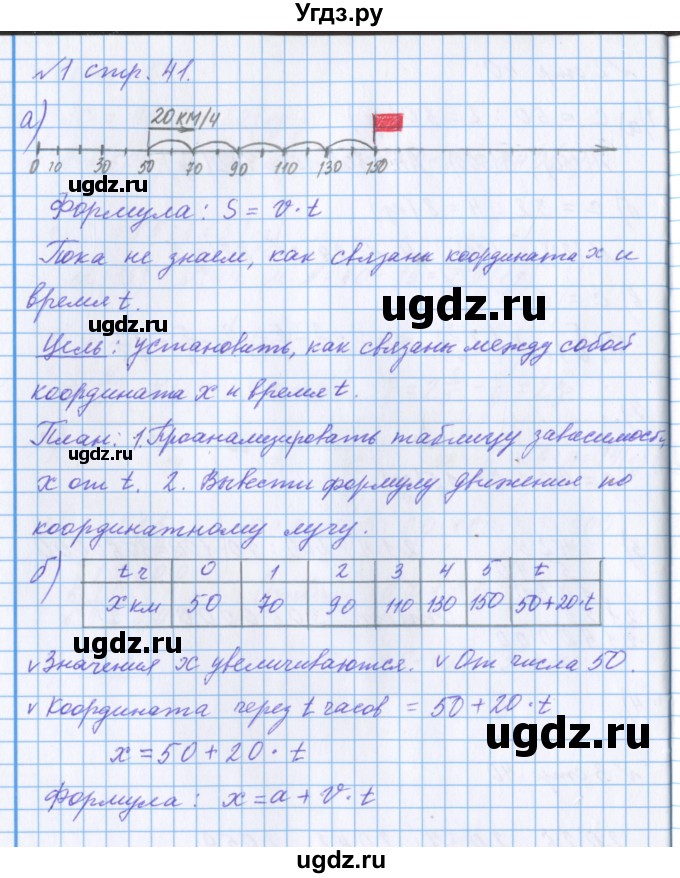 Угдз.ру
№1 стр. 41.
а)
20 км/ч
0 10 30 50 70 90 110 130 150
ugdz.ru
Формула: S = v · t
Пока не знаем, как связаны координата x и
время t.
ugdz.ru
ugdz.ru
Цель: установить, как связаны между собой
координата x и время t.
ugdz.ru
План: 1. Проанализировать таблицу зависимости
x от t. 2. Вывести формулу движения по
ugdz.ru
координатному лучу.
б)
t ч 0 1 2 3 4 5 t
x км 50 70 90 110 130 150 50+20·t
ugdz.ru
v Значения x увеличиваются. v От числа 50.
v Координата через t часов = 50 + 20 · t
ugdz.ru
x = 50 + 20 · t
ugdz.ru
Формула: x = a + v · t
ugdz.ru